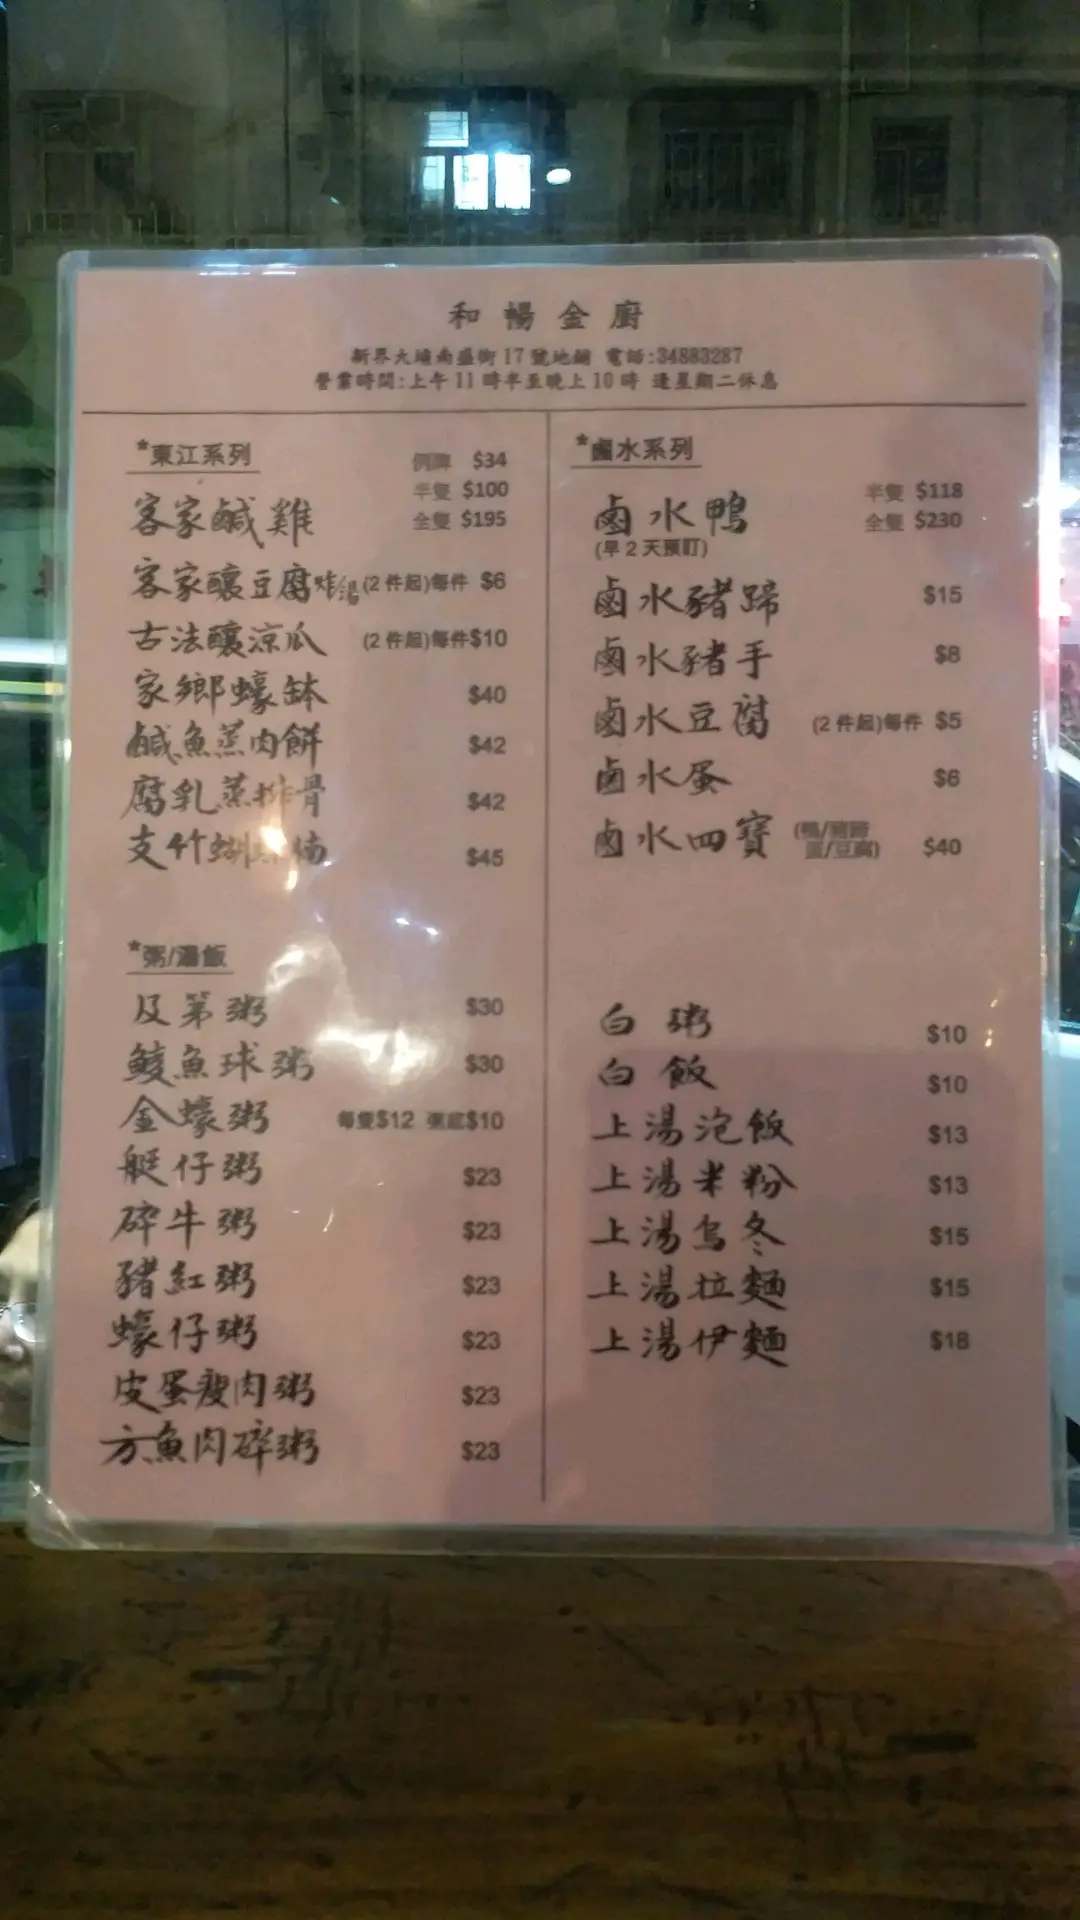 和暢金廚
新界大埔南盛街17號地鋪 電話:34883287
營業時間:上午11時半至晚上10時 逢星期二休息
*東江系列
例牌 $34
客家鹹雞 半隻 $100
全隻 $195
客家釀豆腐 炸/湯 (2件起)每件 $6
古法釀涼瓜 (2件起)每件$10
家鄉蠔缽 $40
鹹魚蒸肉餅 $42
腐乳蒸排骨 $42
支竹 $45
*粥/湯飯
及第粥 $30
鯪魚球粥 $30
金蠔粥 每隻$12 粥底$10
艇仔粥 $23
碎牛粥 $23
豬紅粥 $23
蠔仔粥 $23
皮蛋瘦肉粥 $23
方魚肉碎粥 $23
*鹵水系列
鹵水鴨 半隻 $118
全隻 $230
(早2天預訂)
鹵水豬蹄 $15
鹵水豬手 $8
鹵水豆腐 (2件起)每件 $5
鹵水蛋 $6
鹵水四寶 (鴨/豬蹄 $40
蛋/豆腐)
白粥 $10
白飯 $10
上湯泡飯 $13
上湯米粉 $13
上湯烏冬 $15
上湯拉麵 $15
上湯伊麵 $18